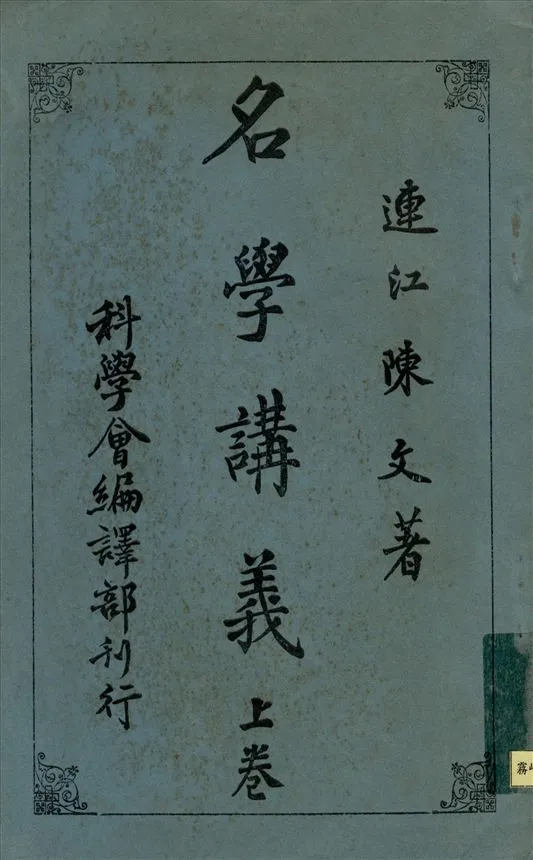 連江陳文著
名學講義上卷
科學會編譯部刋行
霧